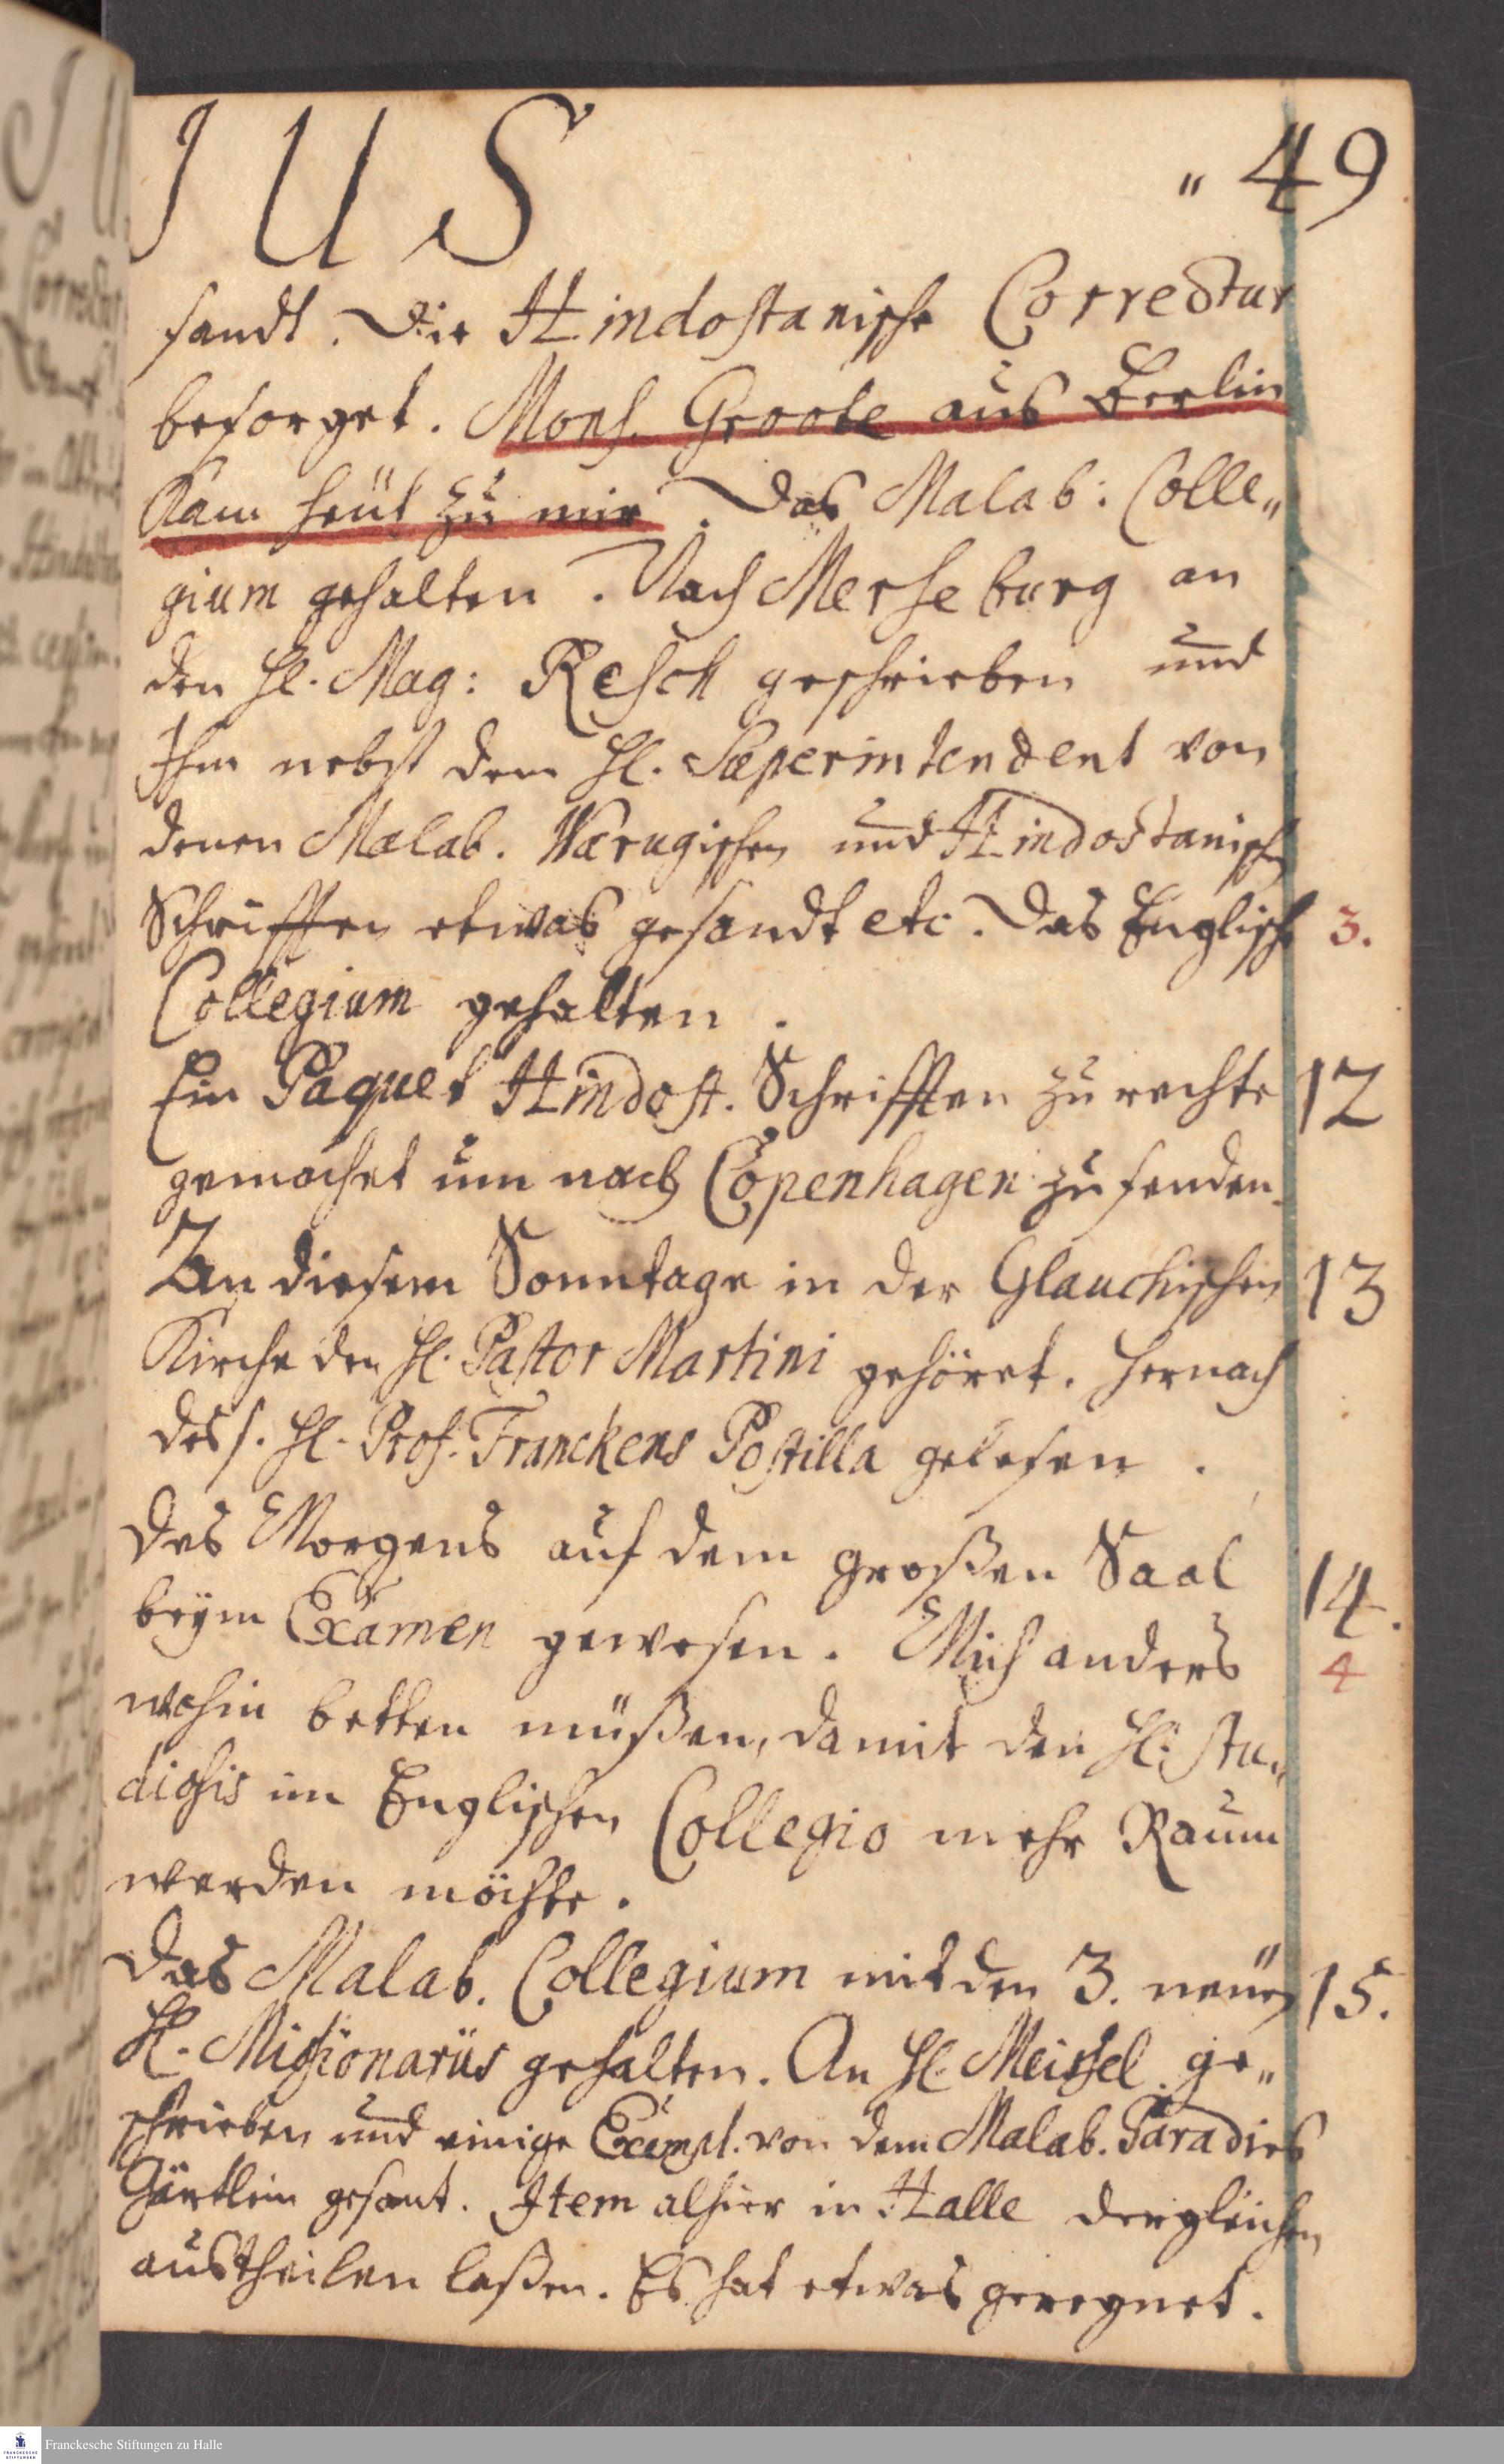 IUS „ 49
sandt. Die Hindostanische Correctur
besorget. Mons. Groote aus Berlin
Kam heüt zu mir. Das Malab: Colle„
gium gehalten. Nach Merseburg an
den Hl. Mag: Resch geschrieben und
Ihm nebst dem Hl. Superintendent von
denen Malab. Warugischen und Hindostanischen
Schrifften etwas gesandt etc. Das Englische 3.
Collegium gehalten.
Ein Paquet Hindost. Schrifften zu rechte 12
gemachet um nach Copenhagen zu senden.
An diesem Sonntage in der Glauchischen 13
Kirche den Hl. Pastor Martini gehöret. Hernach
des s. Hl. Prof. Franckens Postilla gelesen.
Des Morgens auf dem großen Saal 14.
beÿm Examen gewesen. Mich anders 4
wohin betten müßen, damit den Hl. stu„
diosis im Englischen Collegio mehr Raum
werden möchte.
Das Malab. Collegium mit den 3. neüen 15.
Hl. Missionariis gehalten. An Hl. Meissel ge„
schrieben und einige Exempl. von dem Malab. Paradies
Gärtlein gesant. Item alhier in Halle dergleichen
austheilen laßen. Es hat etwas geregnet.
FRANCKESCHE STIFTUNGEN
Franckesche Stiftungen zu Halle